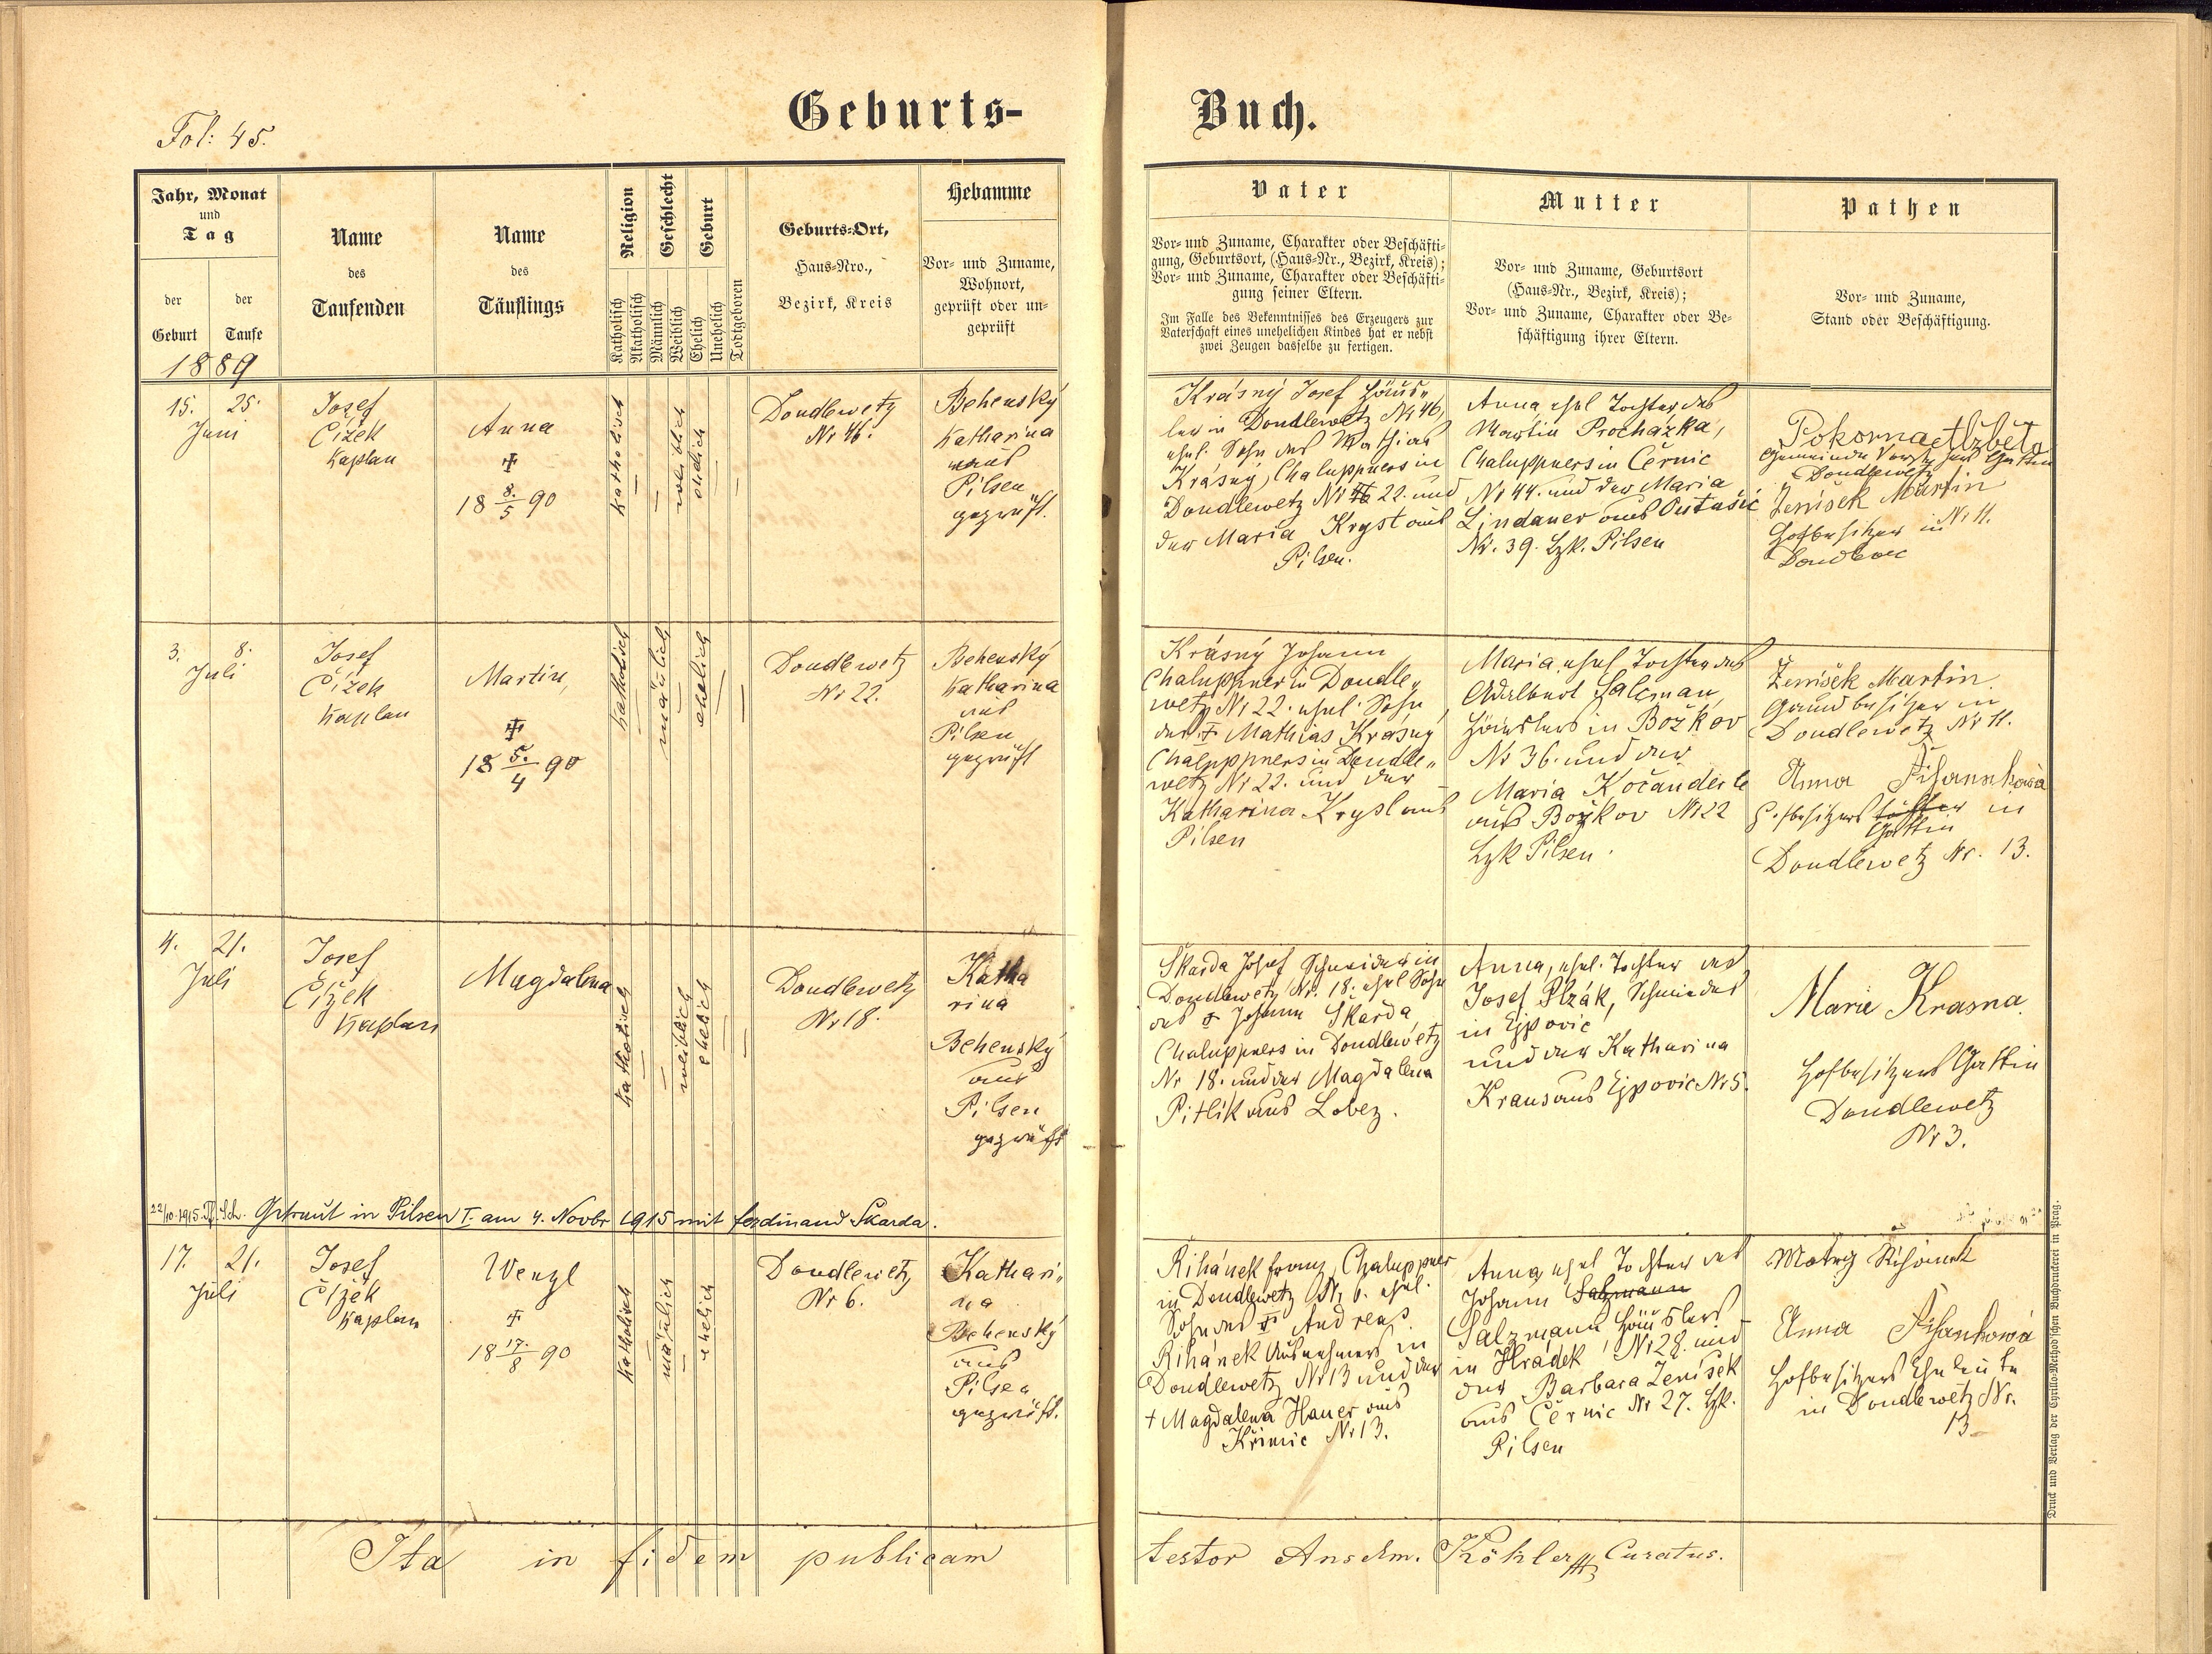 Fol: 45.
Geburts-
Buch.
Jahr, Monat
und
Tag
der
Geburt
der
Taufe
1889
Name
des
Taufenden
Name
des
Täuflings
Religion
Katholisch
Akatholisch
Geschlecht
Männlich
Weiblich
Geburt
Ehelich
Unehelich
Todtgeboren
Geburts-Ort,
Haus-Nro.,
Bezirk, Kreis
Hebamme
Vor- und Zuname,
Wohnort,
geprüft oder un-
geprüft
Vater
Vor- und Zuname, Charakter oder Beschäfti-
gung, Geburtsort, (Haus-Nr., Bezirk, Kreis);
Vor- und Zuname, Charakter oder Beschäfti-
gung seiner Eltern.
Im Falle des Bekenntnisses des Erzeugers zur
Vaterschaft eines unehelichen Kindes hat er nebst
zwei Zeugen dasselbe zu fertigen.
Mutter
Vor- und Zuname, Geburtsort
(Haus-Nr., Bezirk, Kreis);
Vor- und Zuname, Charakter oder Be-
schäftigung ihrer Eltern.
Pathen
Vor- und Zuname,
Stand oder Beschäftigung.
15. 25.
Juni
Josef
Čížek
Kaplan
Anna
✝
18 8./5 90
katholisch
weiblich
ehelich
Doudlewetz
Nr 46.
Behenský
Katharina
aus
Pilsen
geprüft.
Krásný Josef Häus„
ler in Doudlewetz Nr 46,
ehel. Sohn des Mathias
Krásný, Chaluppners in
Doudlewetz Nr 46 22. und
der Maria Kryst aus
Pilsen.
Anna, ehel Tochter des
Martin Procházka,
Chaluppners in Černic
Nr 44. und der Maria
Lindauer aus Outušic
Nr. 39. Bzk. Pilsen
Pokorna Alžběta
Gemeinde Vorstehers Gattin
Doudlewetz
Ženíšek Martin
Hofbesitzer in Nr 11.
Doudlevec
3. 8.
Juli
Josef
Čížek
Kaplan
Martin,
✝
18 5./4 90
katholisch
mänlich
ehelich
Doudlewetz
Nr 22.
Behenský
Katharina
aus
Pilsen
geprüft
Krásný Johann
Chaluppner in Doudle„
wetz Nr 22. ehel. Sohn
des ✝ Mathias Krásný
Chalppners in Doudle„
wetz Nr 22. und der
Katharina Krysl aus
Pilsen
Maria, ehel Tochter des
Adalbert Salcman,
Häuslers in Božkov
Nr 36. und der
Maria Kočanderle
aus Božkov Nr 22
Bzk Pilsen.
Ženíšek Martin
Grundbesitzer in
Doudlewetz Nr 11.
Anna Řihankowá
Hofbesitzers tochter in
Gattin
Doudlewetz Nr. 13.
4. 21.
Juli
Josef
Čížek
Kaplan
Magdalena
katholisch
weiblich
ehelich
Doudlewetz
Nr 18.
Katha
rina
Behenský
aus
Pilsen
geprüft
Skarda Josef Schneider in
Doudlewetz Nr. 18. ehel Sohn
des ✝ Johann Škarda
Chaluppners in Doudlewetz
Nr 18. und der Magdalena
Pitlik aus Lobez.
Anna, ehel. Tochter des
Josef Plzák, Schmiedes
in Ejpovic
und der Katharina
Kraus aus Ejpovic Nr 5.
Marie Krasna.
Hofbesitzers Gattin
Doudlewetz
Nr 3.
22/10. 1915. Getraut in Pilsen I. am 4. Novbr 1915 mit Ferdinand Skarda.
17. 21.
Juli
Josef
Čížek
Kaplan
Wenzl
✝
18 17./8 90
katholisch
mänlich
ehelich
Doudlewetz
Nr 6.
Kathari„
na
Behenský
aus
Pilsen
geprüft.
Rihánek Franz, Chaluppner
in Doudlewetz Nr. 6. ehel.
Sohn des ✝ Andreas
Rihánek Ausnehmers in
Doudlewetz Nr 13 und der
✝ Magdalena Hauer aus
Křimic Nr 13.
Anna, ehel Tochter des
Johann Salzmann
Salzmann Häuslers
in Hradek Nr 28. und
der Barbara Ženíšek
aus Černic Nr 27. Bzk.
Pilsen
Anna Řihankowá
Hofbesitzers Eheleute
in Doudlewetz Nr.
13
Ita in fidem publicam testor Anselm. Köhler Curatus.
Druck und Verlag der Cyrillo-Method'schen Buchdruckerei in Prag.